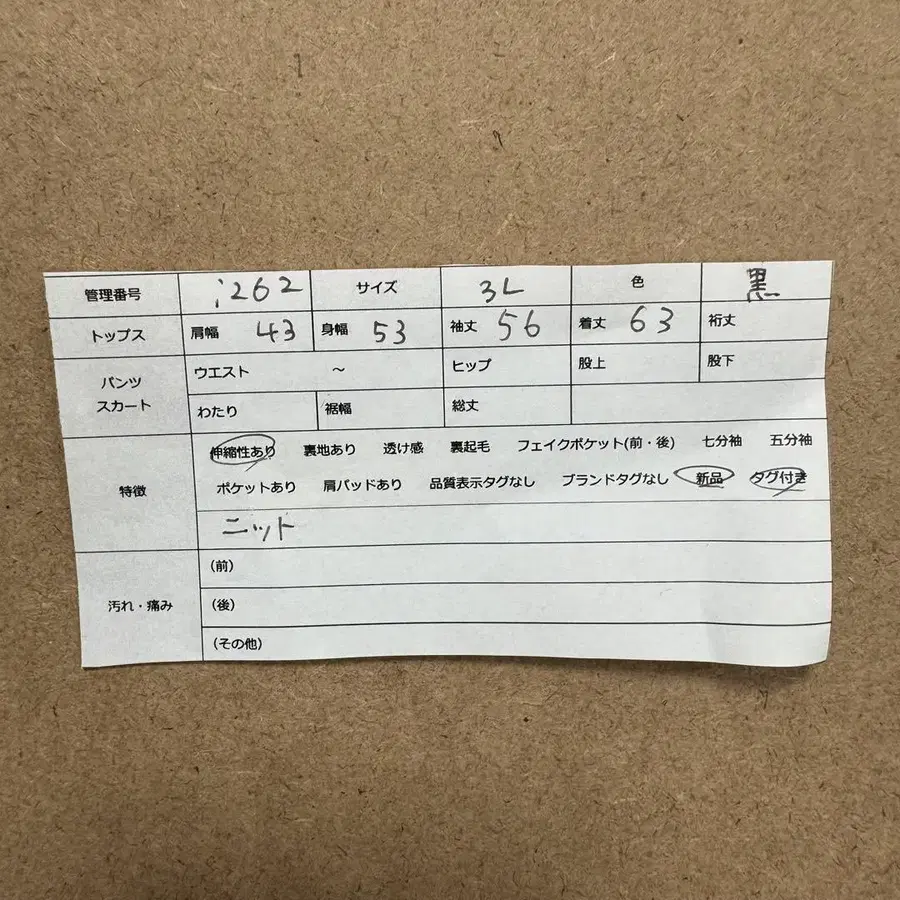 管理番号 i262 サイズ 3L 色 黒
トップス 肩幅 43 身幅 53 袖丈 56 着丈 63 裄丈
パンツ スカート ウエスト ～ ヒップ 股上 股下
わたり 裾幅 総丈
特徴 伸縮性あり 裏地あり 透け感 裏起毛 フェイクポケット(前・後) 七分袖 五分袖
ポケットあり 肩パッドあり 品質表示タグなし ブランドタグなし 新品 タグ付き
ニット
汚れ・痛み (前)
(後)
(その他)